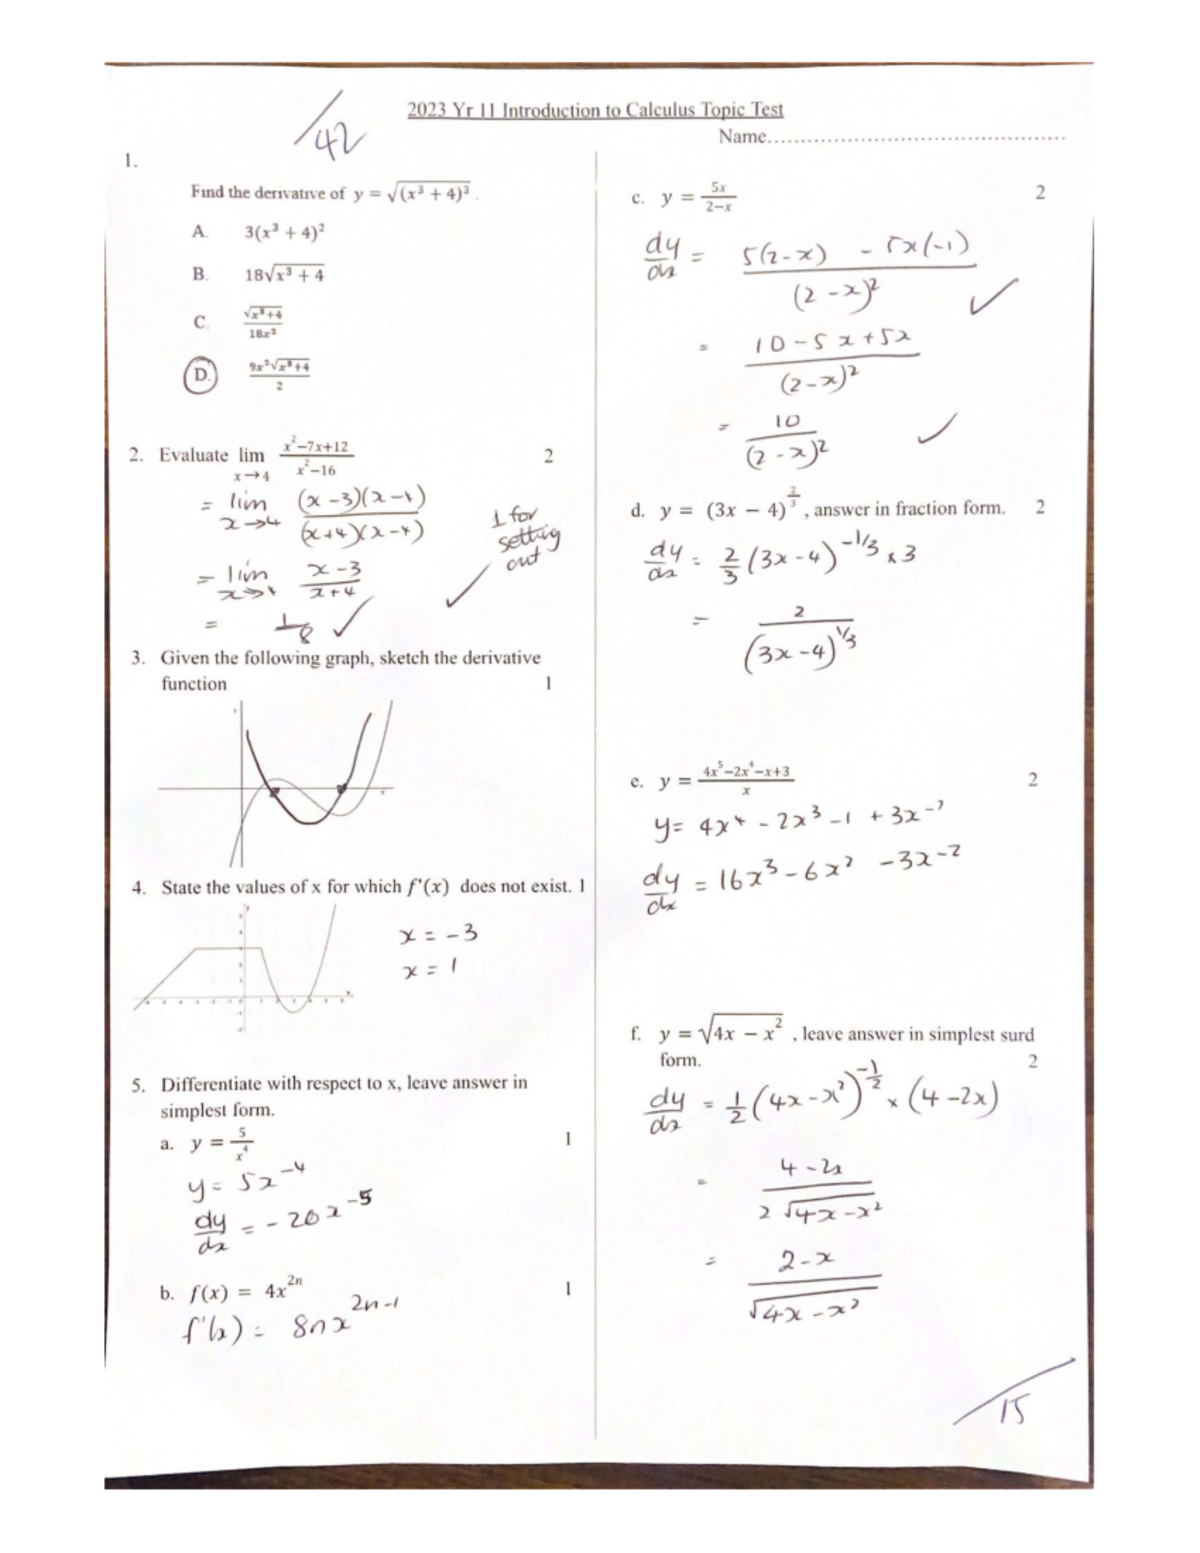 2023 Yr 11 Introduction to Calculus Topic Test
/42
Name..........................................
1.
Find the derivative of y = √((x³ + 4)³) .
A. 3(x³ + 4)²
B. 18√(x³ + 4)
C. √(x³+4) / 18x²
D. 9x²√(x³+4) / 2
2. Evaluate lim x→4 (x²−7x+12)/(x²−16) 2
= lim x→4 (x −3)(x −4) / (x+4)(x −4)
1 for
setting
out
= lim x→4 (x −3)/(x + 4)
= 1/8 ✓
3. Given the following graph, sketch the derivative
function 1
4. State the values of x for which f'(x) does not exist. 1
x = −3
x = 1
5. Differentiate with respect to x, leave answer in
simplest form.
a. y = 5/x⁴ 1
y = 5x⁻⁴
dy/dx = −20x⁻⁵
b. f(x) = 4x²ⁿ 1
f'(x) = 8nx²ⁿ⁻¹
c. y = 5x/(2−x) 2
dy/dx = (5(2−x) − 5x(−1)) / (2 −x)² ✓
= (10 −5x +5x) / (2−x)²
= 10 / (2 −x)² ✓
d. y = (3x − 4)^(2/3) , answer in fraction form. 2
dy/dx = 2/3 (3x −4)^(−1/3) × 3
= 2 / (3x −4)^(1/3)
e. y = (4x⁵−2x⁴−x+3)/x 2
y = 4x⁴ − 2x³ −1 + 3x⁻¹
dy/dx = 16x³ − 6x² − 3x⁻²
f. y = √(4x − x²) , leave answer in simplest surd
form. 2
dy/dx = 1/2 (4x −x²)^(−1/2) × (4 −2x)
= (4 −2x) / 2√(4x −x²)
= (2−x) / √(4x −x²)
/15